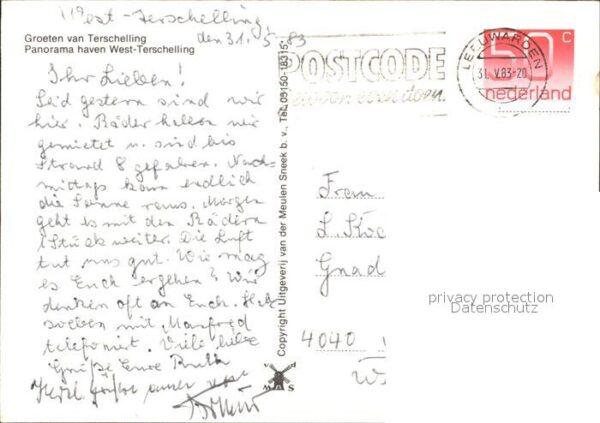 West-Terschelling,
den 31.5.83
Groeten van Terschelling
Panorama haven West-Terschelling
Ihr Lieben!
Seid gestern sind wir
hier. Räder haben wir
gemietet u. sind bis
Strand 8 gefahren. Nach-
mittags kam endlich
die Sonne raus. Morgen
geht es mit den Rädern
1 Stück weiter. Die Luft
tut uns gut. Wie mag
es Euch ergehen? Wir
denken oft an Euch. Hab
soeben mit Manfred
telefoniert. Viele liebe
Grüße Eure Ruth
Herzl. Grüße auch von
Copyright Uitgeverij van der Meulen Sneek b. v., Tel. 05150-18315*
V D
M S
POSTCODE
even doen.
LEEUWARDEN
31.V.83-20
50 C
nederland
Frau
L. 
Gnad
4040
privacy protection
Datenschutz